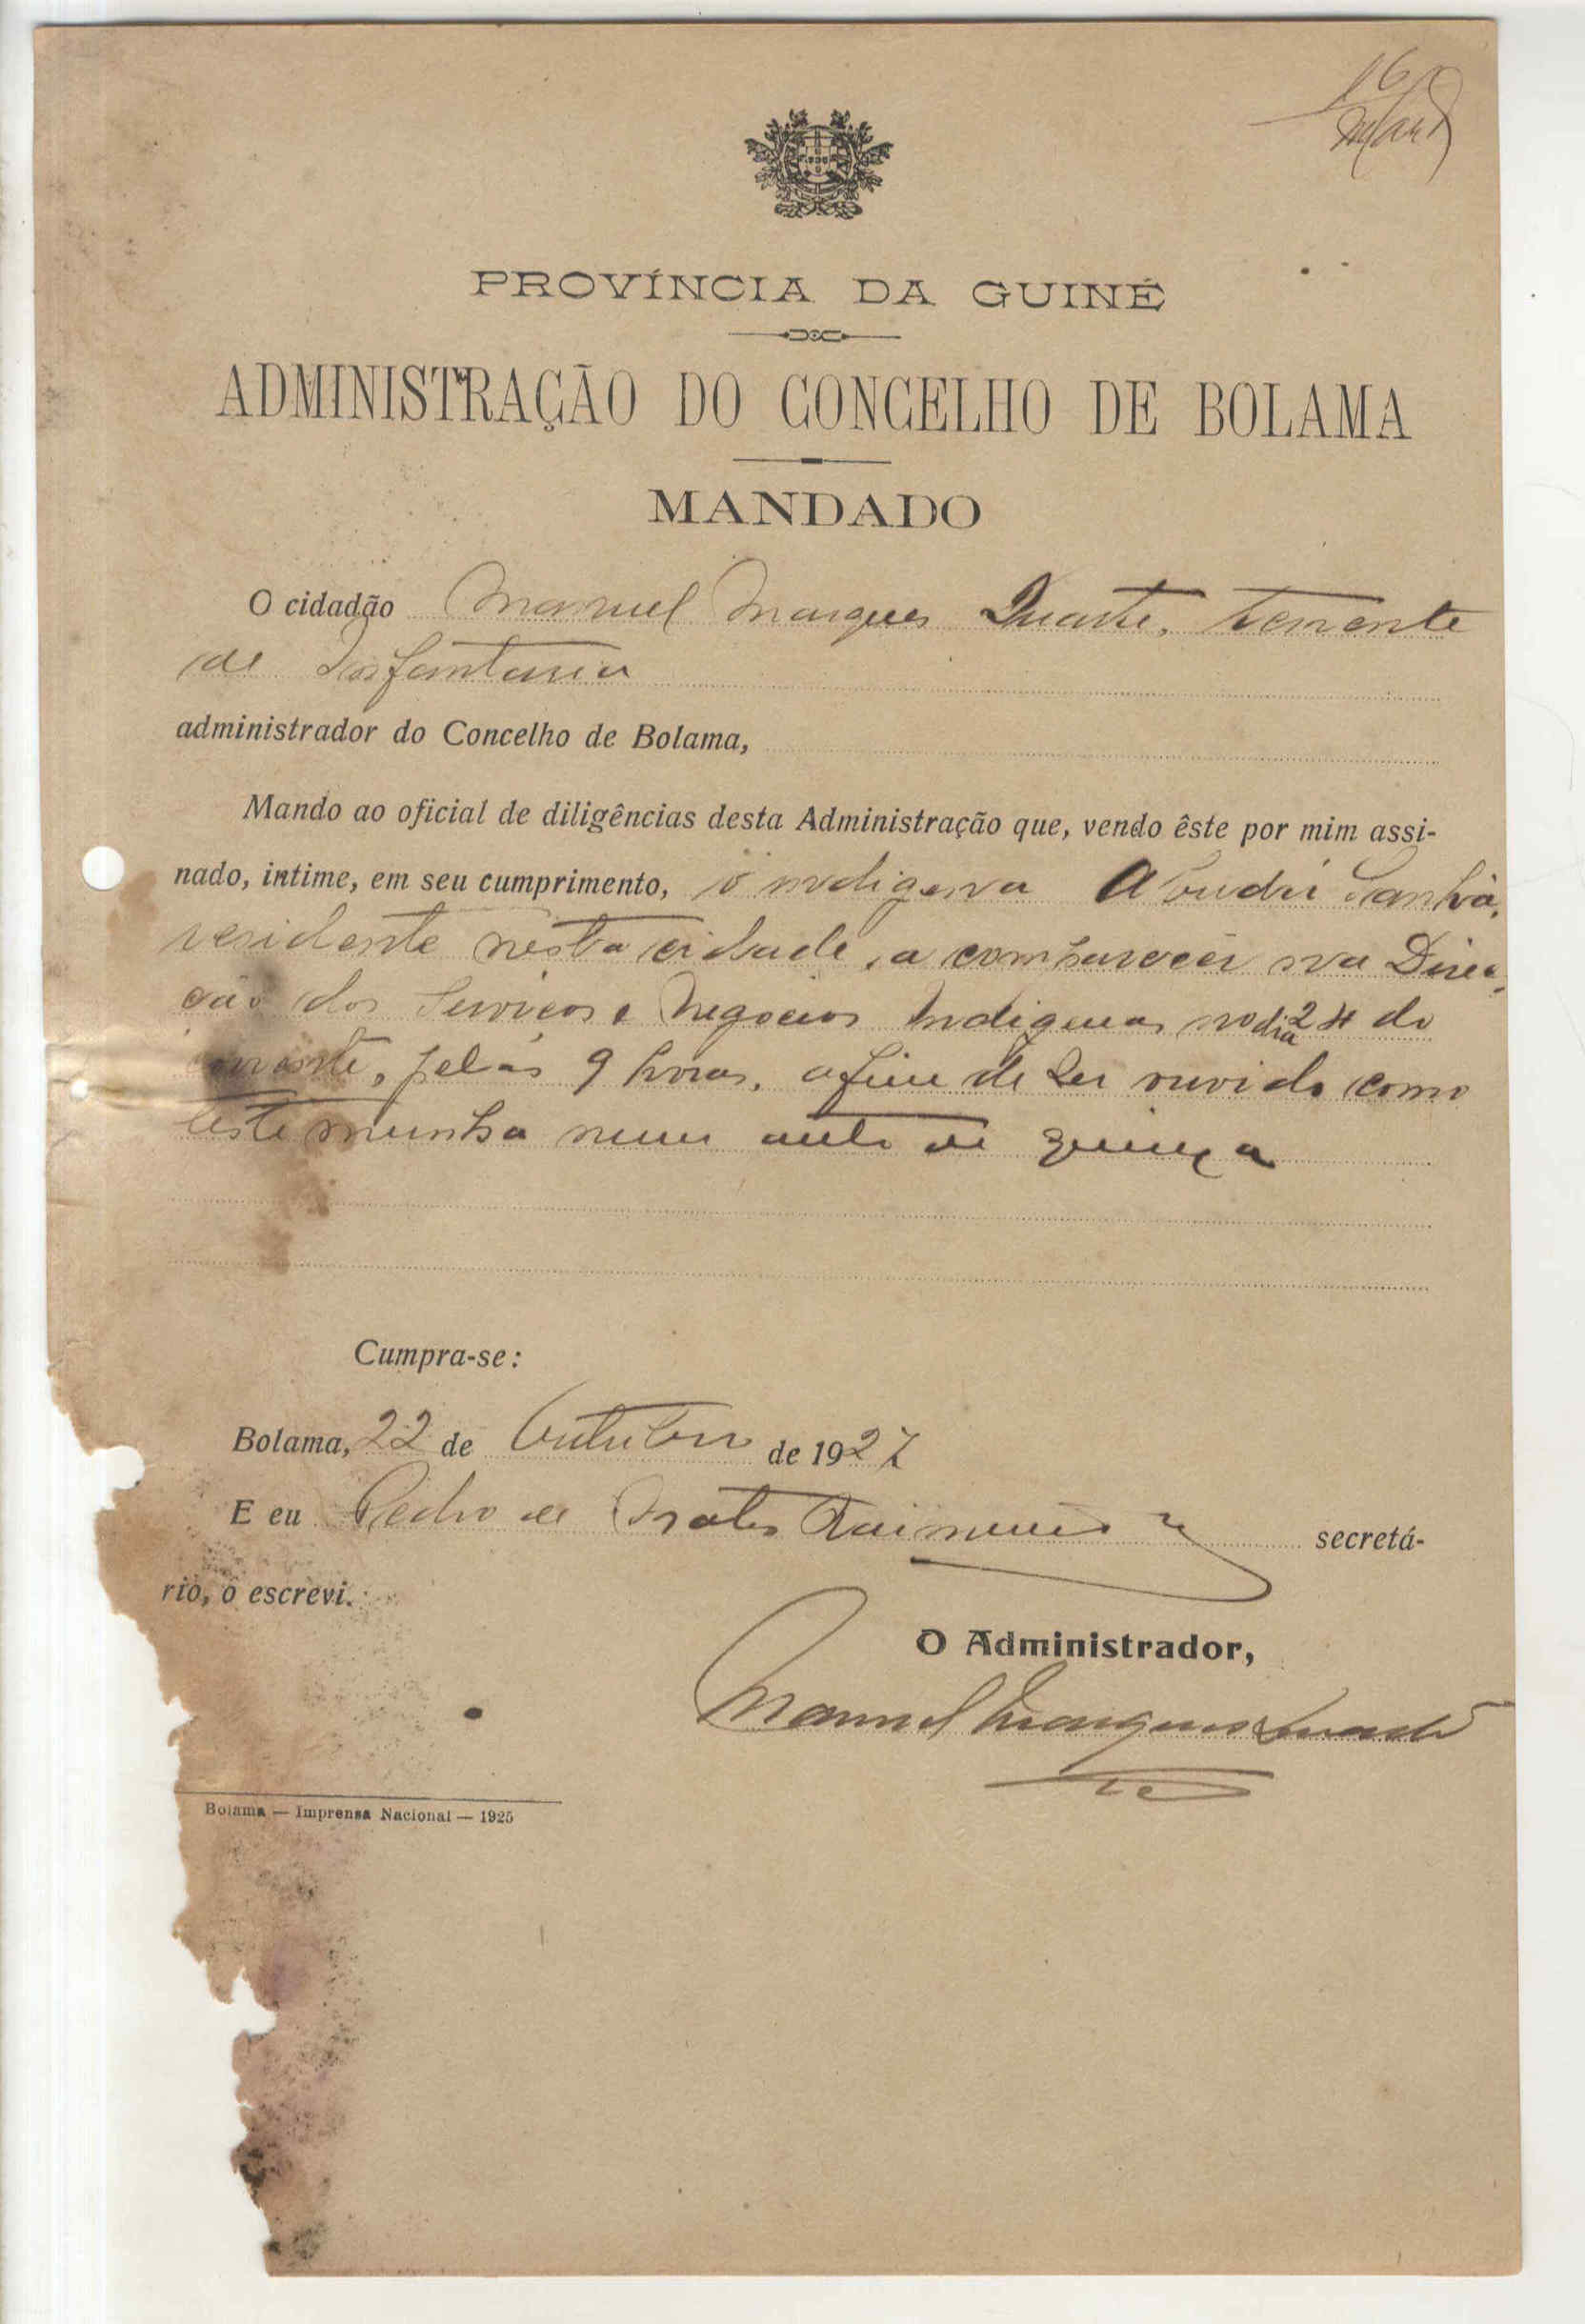 16
PROVÍNCIA DA GUINÉ
ADMINISTRAÇÃO DO CONCELHO DE BOLAMA
MANDADO
O cidadão Manuel Marques Duarte, tenente
de Infantaria
administrador do Concelho de Bolama,
Mando ao oficial de diligências desta Administração que, vendo êste por mim assi-
nado, intime, em seu cumprimento, o indigena Sanhá,
residente nesta cidade, a comparecer na Direc-
ção dos Serviços e Negocios Indigenas no dia 24 do
corrente, pelas 9 horas, afim de ser ouvido como
testemunha num auto de
Cumpra-se:
Bolama, 22 de Outubro de 1927
E eu Pedro de secretá-
rio, o escrevi.
O Administrador,
Manuel Marques Duarte
Bolama — Imprensa Nacional — 1925